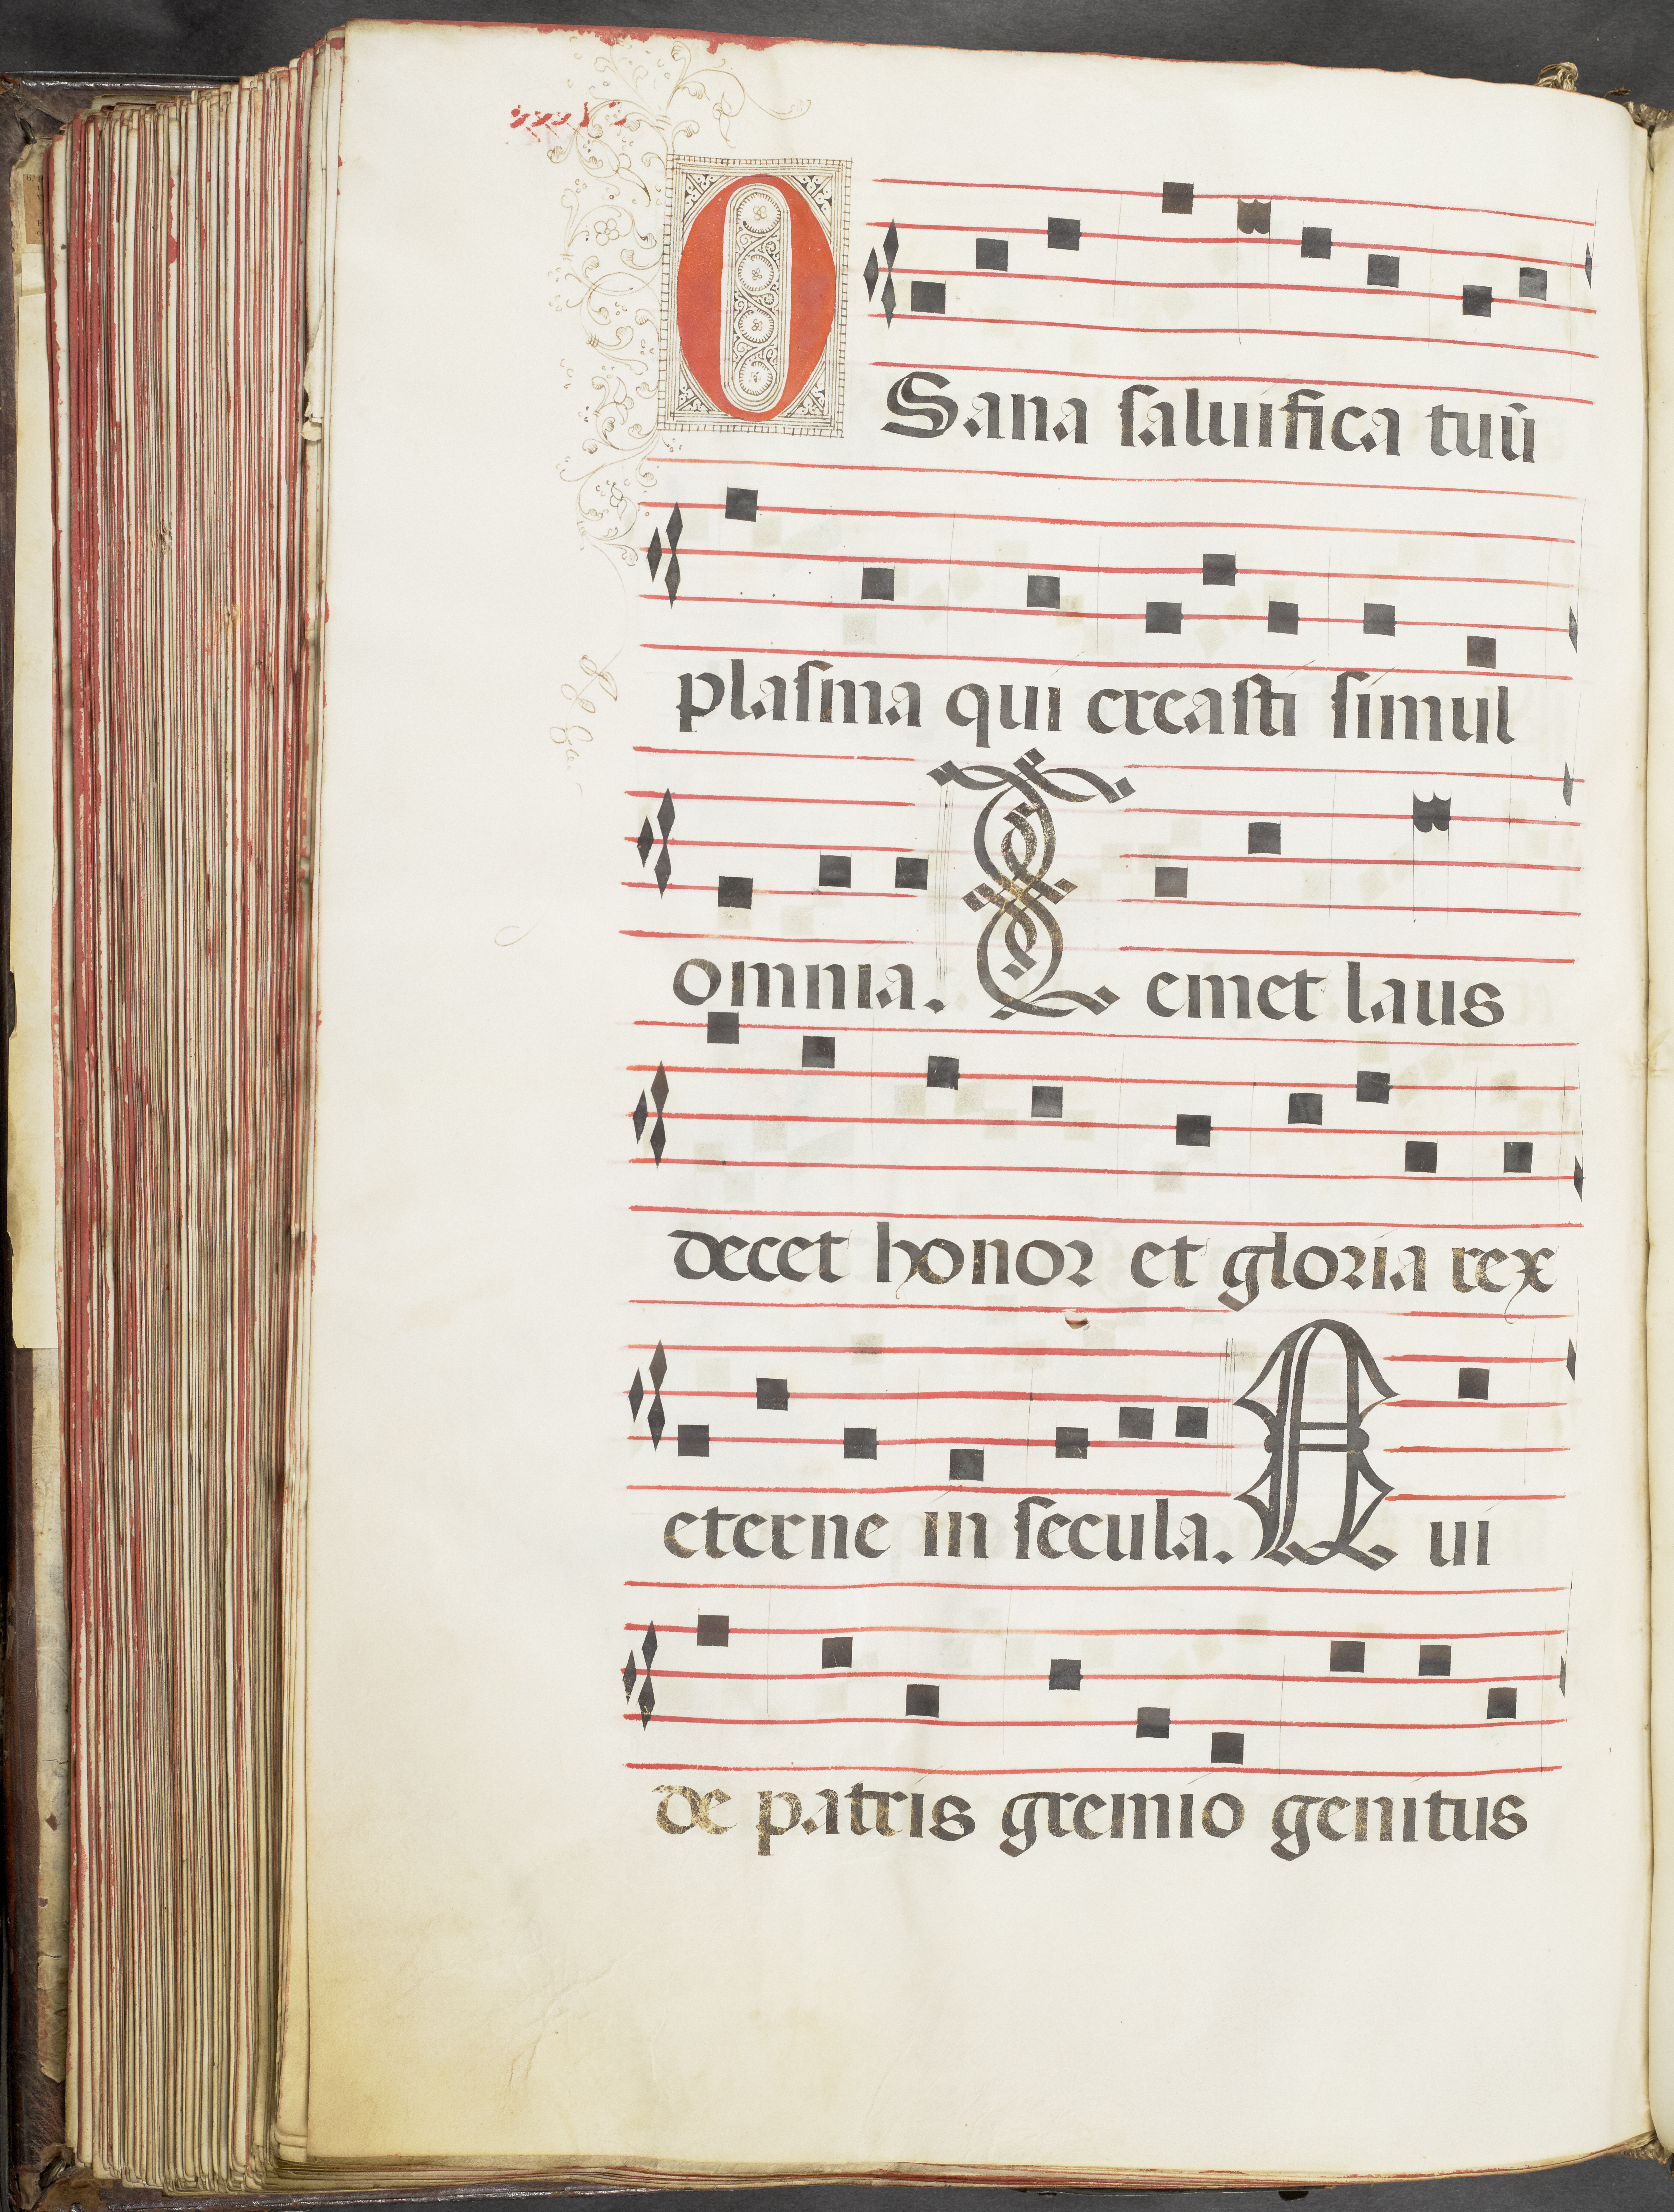 OSana saluifica tuũ
plasma qui creasti simul
omnia. Temet laus
decet honor et gloria rex
eterne in secula. Qui
de patris gremio genitus